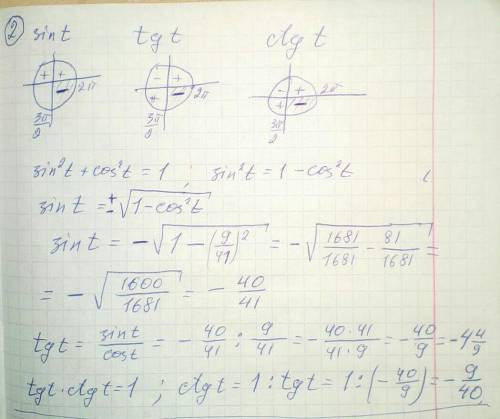 ② sin t   tg t   ctg t
+ + − 2π   − + + − 2π   − + + − 2π
3π/2   3π/2   3π/2
sin²t + cos²t = 1 ; sin²t = 1 − cos²t
sin t = ±√(1 − cos²t)
sin t = −√(1 − (9/41)²) = −√(1681/1681 − 81/1681) =
= −√(1600/1681) = − 40/41
tg t = sin t/cos t = − 40/41 : 9/41 = − 40·41/41·9 = − 40/9 = −4 4/9
tg t · ctg t = 1 ; ctg t = 1 : tg t = 1 : (− 40/9) = − 9/40